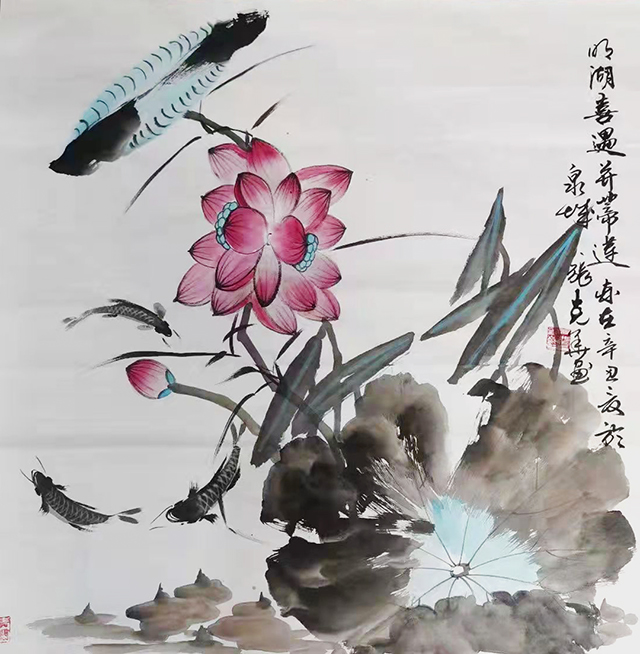 明湖喜遇并蒂莲岁在辛丑夏於
泉城張克画